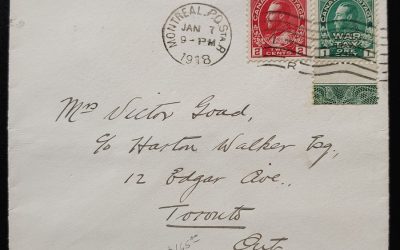 MONTREAL, P.Q. Stn R
JAN 7
9-PM
1918
CANADA POSTAGE
2 CENTS 2
CANADA POSTAGE
WAR
TAX
1 ONE 1
Mrs Victor Goad,
c/o Harton Walker Esq,
12 Edgar Ave.,
Toronto
Ont